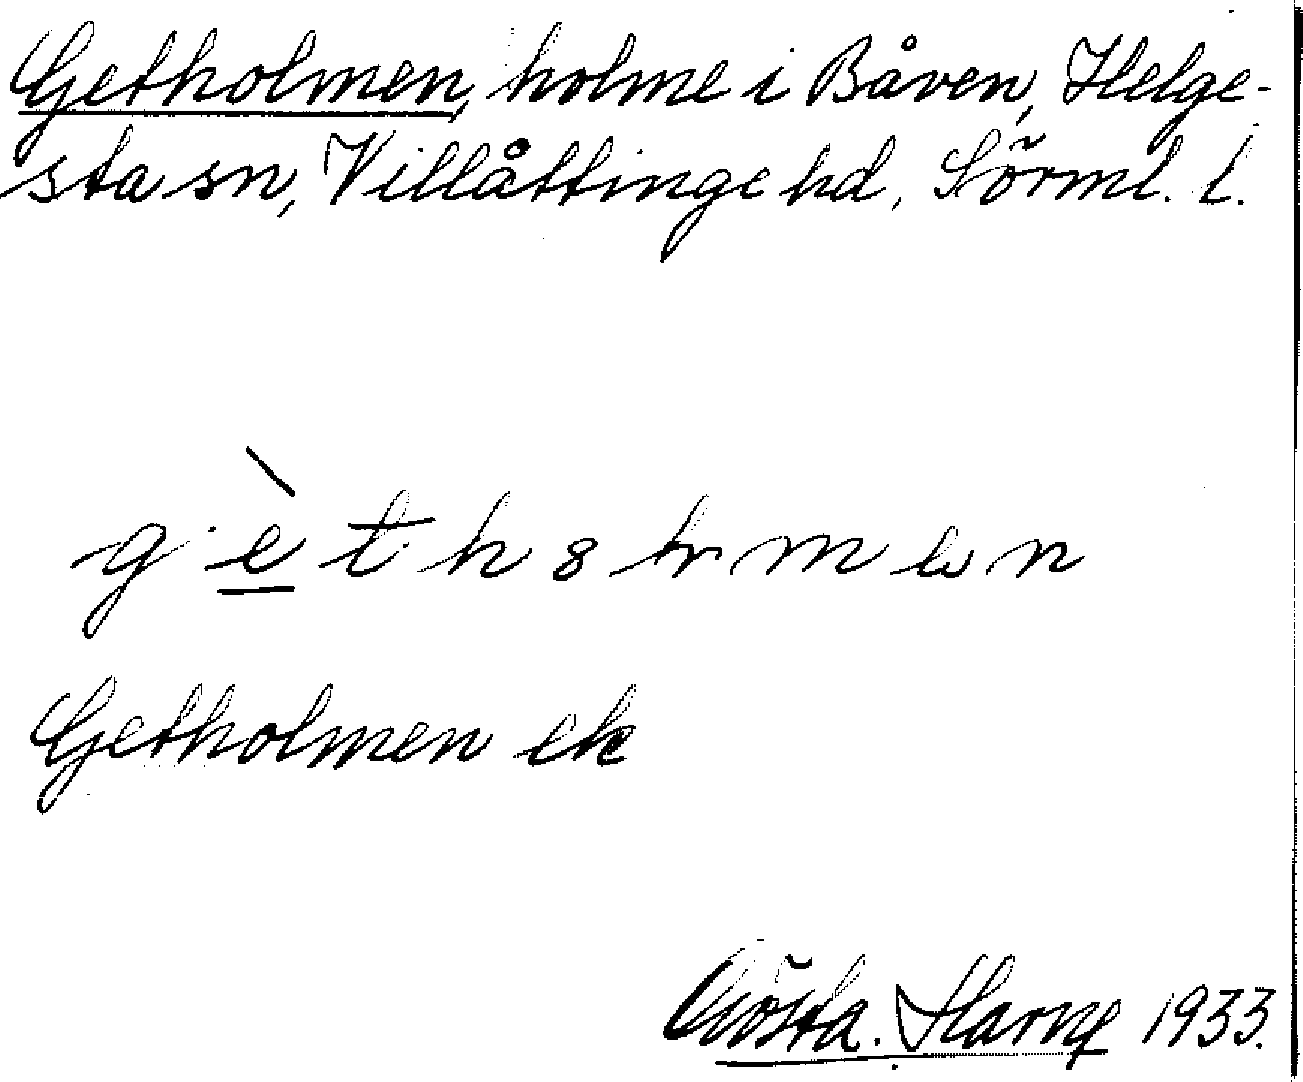 Getholmen, holme i Båven, Helge-
sta sn, Villåttinge hd, Sörml. l.
Getholmen ek
Gösta. Harne 1933.